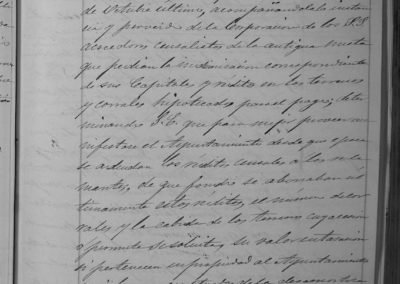 de Octubre último, acompañandolale instan
cia y proveido de la Corporacion de los SS.
acredores censalistas de la antigua mesta
que pedian la misión correspondiente
de sus Capitales y réditos en los terrenos
y corrales hipotecados para su pago; deter
minando S.E. que para mejor proveer ma
nifestase el Ayuntamiento desde que época
se adeudan los réditos censales a los recla
mantes, de que fondos se abonaban úl
timamente estos réditos, el número de cor
rales y la cabida de los terrenos cuya cesion
o permuta se solicita, su valor en tasacion
si pertenecen en propiedad al Ayuntamiento